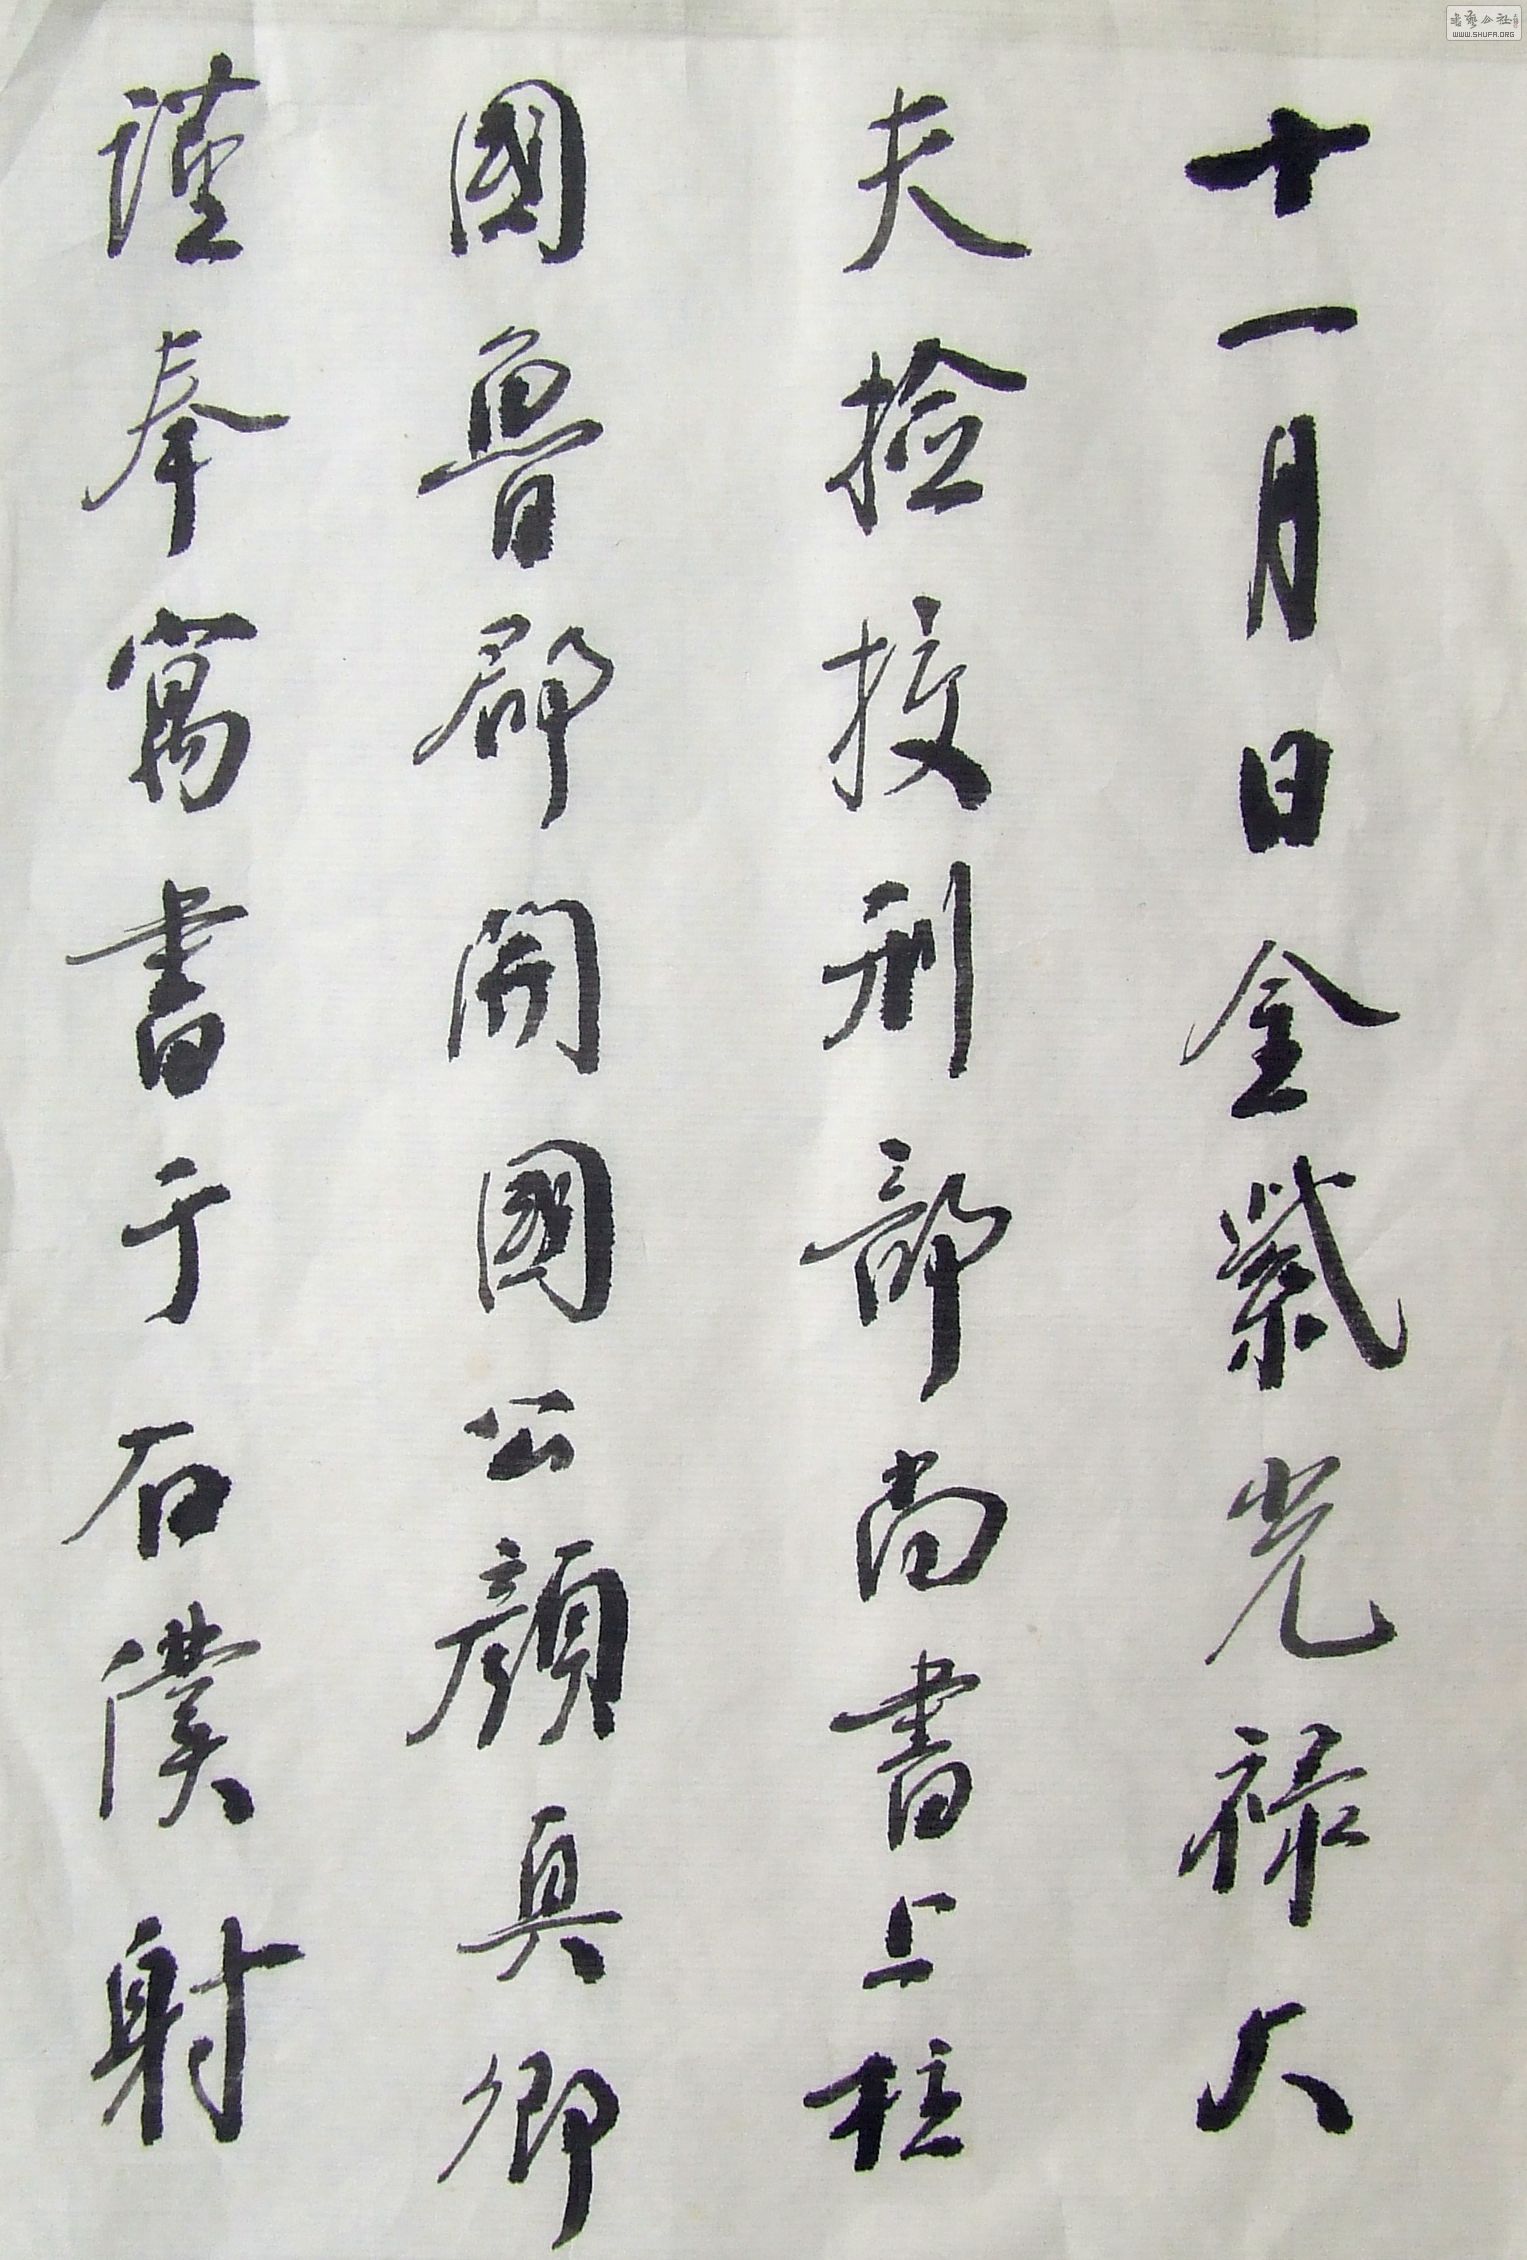 十一月日金紫光禄大
夫撿挍刑部尚書上柱
國魯郡開國公顏真卿
謹奉寓書于右僕射
書藝公社
WWW.SHUFA.ORG